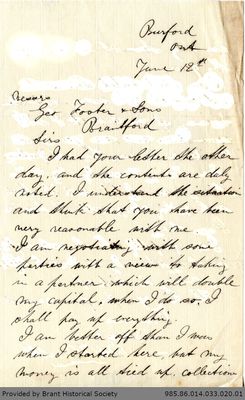 Burford
Ont
June 12th
Messrs
Geo Foster & Sons
Brantford
Sirs
I had your letter the other
day. and the contents are duly
noted. I understand the situation
and think that you have been
very reasonable with me
I am negotiating with some
parties with a view to taking
in a partner which will double
my capital, when I do so, I
shall pay up everything
I am better off than I was
when I started here, but my
money is all tied up. collection
Provided by Brant Historical Society
985.86.014.033.020.01